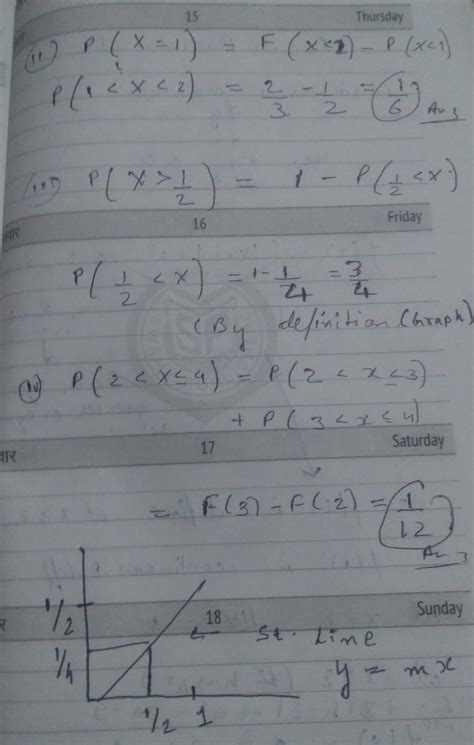 15 Thursday
(ii) P(X=1) = F(X<2) - P(X<1)
P(1 < X < 2) = 2/3 - 1/2 = 1/6 Ans
(iii) P(X > 1/2) = 1 - P(1/2 < X)
16 Friday
P(1/2 < X) = 1 - 1/4 = 3/4
(By definition (Graph)
(iv) P(2 < X ≤ 4) = P(2 < x ≤ 3)
+ P(3 < x ≤ 4)
वार 17 Saturday
= F(3) - F(2) = 1/12
Ans
18 Sunday
1/2
← St. Line
1/4
y = mx
1/2 1